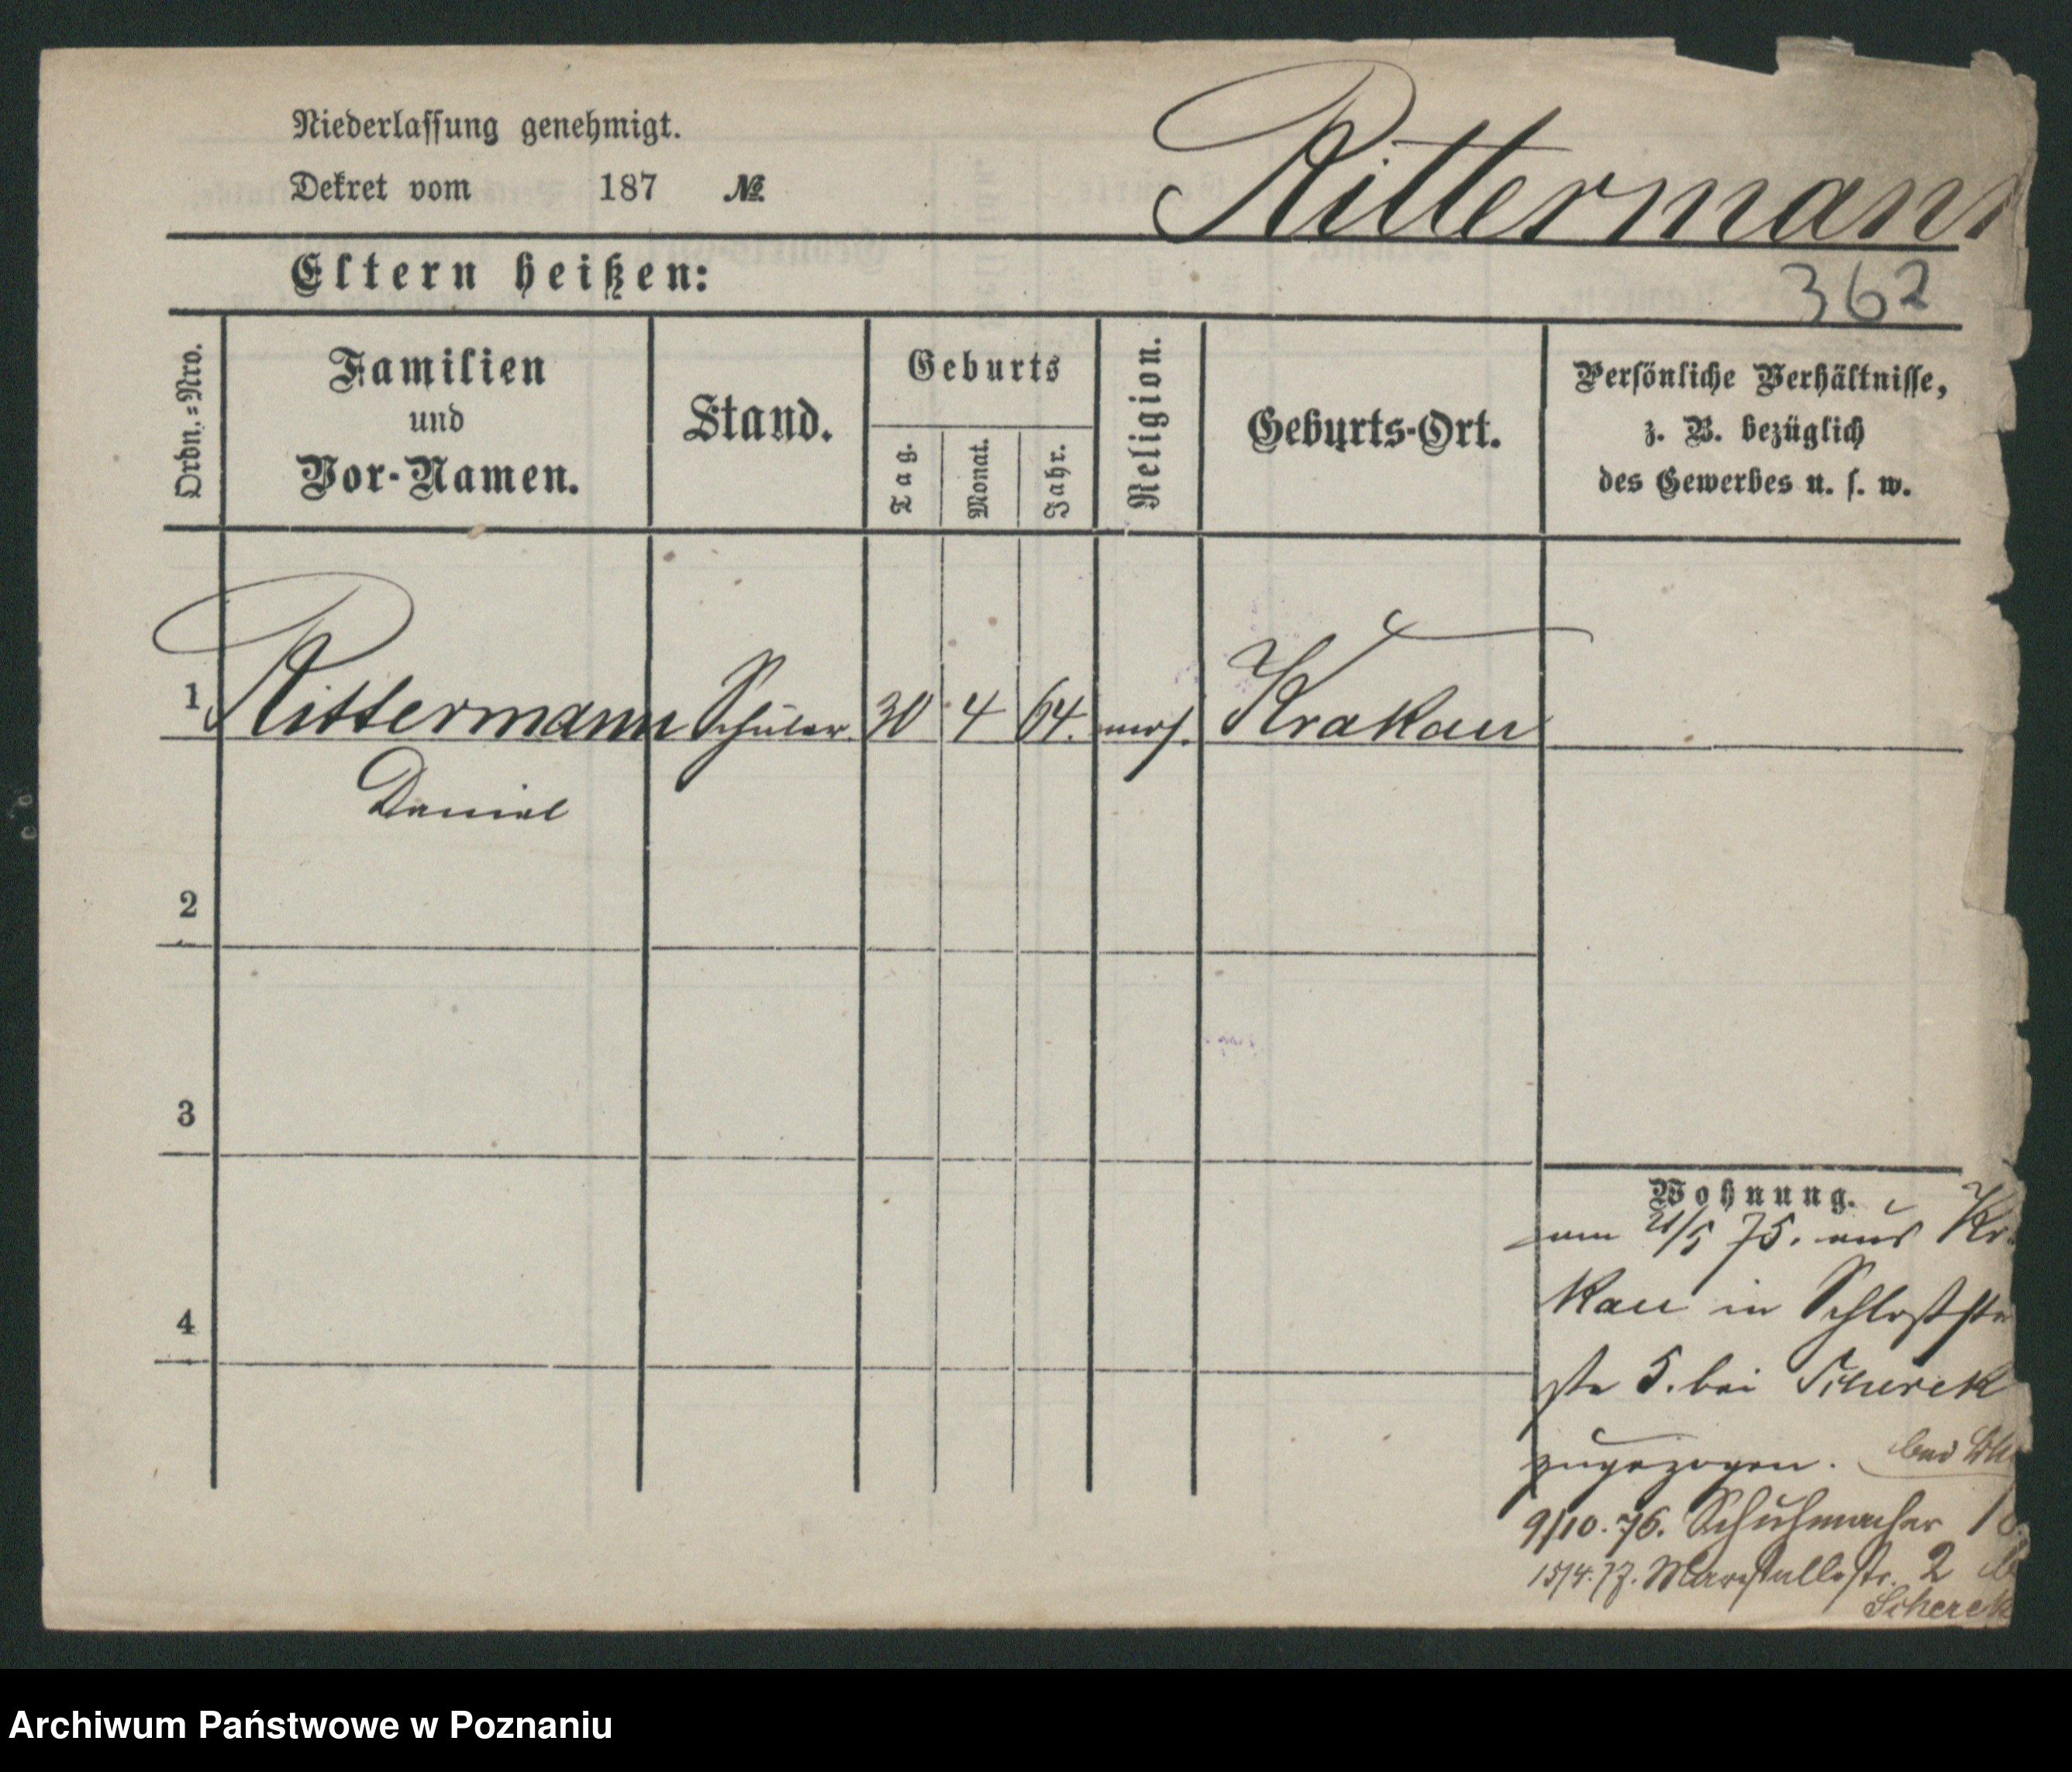 Niederlassung genehmigt.
Dekret vom 187 №
Rittermann
362
Eltern heißen:
Ordn.=Nro.
Familien
und
Vor-Namen.
Stand.
Geburts
Tag.
Monat.
Jahr.
Religion.
Geburts-Ort.
Persönliche Verhältnisse,
z. B. bezüglich
des Gewerbes u. s. w.
1 Rittermann Schüler 30 4 64. mos. Krakau
Daniel
2
3
4
Wohnung.
am 21/5 75. aus Kr
kau in Schloßstr
ste 5. bei Scherek
zugezogen. bei
9/10. 76. Schuhmacher
15/4. 77. Marstallstr. 2
Scherek
Archiwum Państwowe w Poznaniu